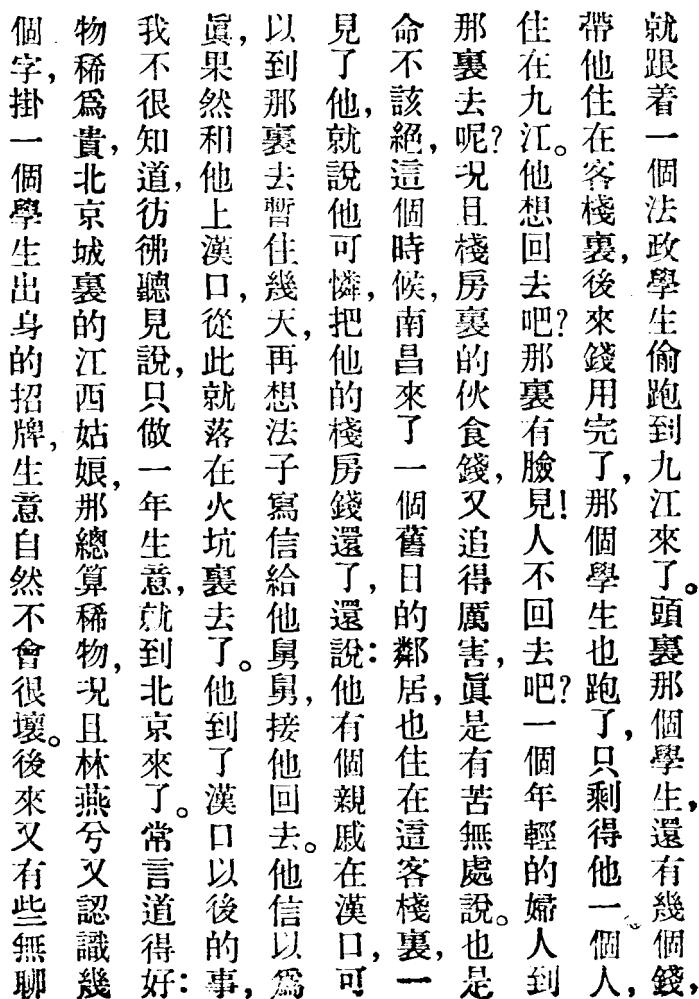 就跟着一個法政學生偷跑到九江來了。頭裏那個學生，還有幾個錢，
帶他住在客棧裏，後來錢用完了，那個學生也跑了，只剩得他一個人，
住在九江。他想回去吧？那裏有臉見！人不回去吧？一個年輕的婦人到
那裏去呢？況且棧房裏的伙食錢，又追得厲害，眞是有苦無處說。也是
命不該絕，這個時候，南昌來了一個舊日的鄰居，也住在這客棧裏，一
見了他，就說他可憐，把他的棧房錢還了，還說：他有個親戚在漢口，可
以到那裏去暫住幾天，再想法子寫信給他舅舅，接他回去。他信以爲
眞，果然和他上漢口，從此就落在火坑裏去了。他到了漢口以後的事，
我不很知道，彷彿聽見說，只做一年生意，就到北京來了。常言道得好：
物稀爲貴，北京城裏的江西姑娘，那總算稀物，況且林燕兮又認識幾
個字，掛一個學生出身的招牌，生意自然不會很壞。後來又有些無聊